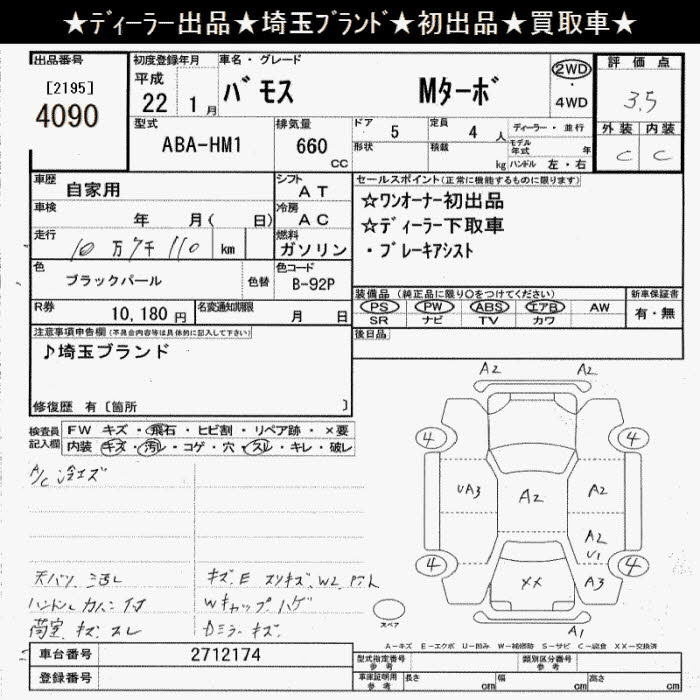 ★ディーラー出品★埼玉ブランド★初出品★買取車★
出品番号
[2195]
4090
初度登録年月
平成
22 1月
車名・グレード
バモス Mターボ
2WD
・
4WD
評価点
3.5
外装 内装
C C
型式
ABA-HM1
排気量
660
cc
ドア 5
形状
定員 4 人
積載 kg
ディーラー・並行
モデル年式 年
ハンドル 左・右
車歴 自家用
シフト AT
車検 年 月( 日)
冷房 AC
走行 10万7千110 km
燃料 ガソリン
色 ブラックパール 色替
色コード B-92P
R券 10,180 円
名変通知期限 月 日
セールスポイント(正常に機能するものに限ります)
☆ワンオーナー初出品
☆ディーラー下取車
・ブレーキアシスト
装備品 (純正品に限り○をつけてください)
PS PW ABS エアB AW
SR ナビ TV カワ
新車保証書
有・無
後日品
注意事項申告欄(不具合内容等は具体的に記入して下さい)
♪埼玉ブランド
修復歴 有〔箇所 〕
検査員記入欄
FW キズ・飛石・ヒビ割・リペア跡・×要
内装 キズ・汚レ・コゲ・穴・スレ・キレ・破レ
A/C 冷エズ
天バリ
ハンドルカバー付
荷室 キズ スレ
キズ、E スリキズ、W2
Wキャップハゲ
Dミラーキズ
A2 A2
4 4
UA3 A2 A2
A2
U1
4 4
XX A3
A1
スペア
A－キズ E－エクボ U－凹み W－補修跡 S－サビ C－腐食 XX－交換済
車台番号 2712174
登録番号
型式指定番号
参考
類別区分番号
参考
車庫証明用
参考
長さ cm 幅 cm 高さ cm